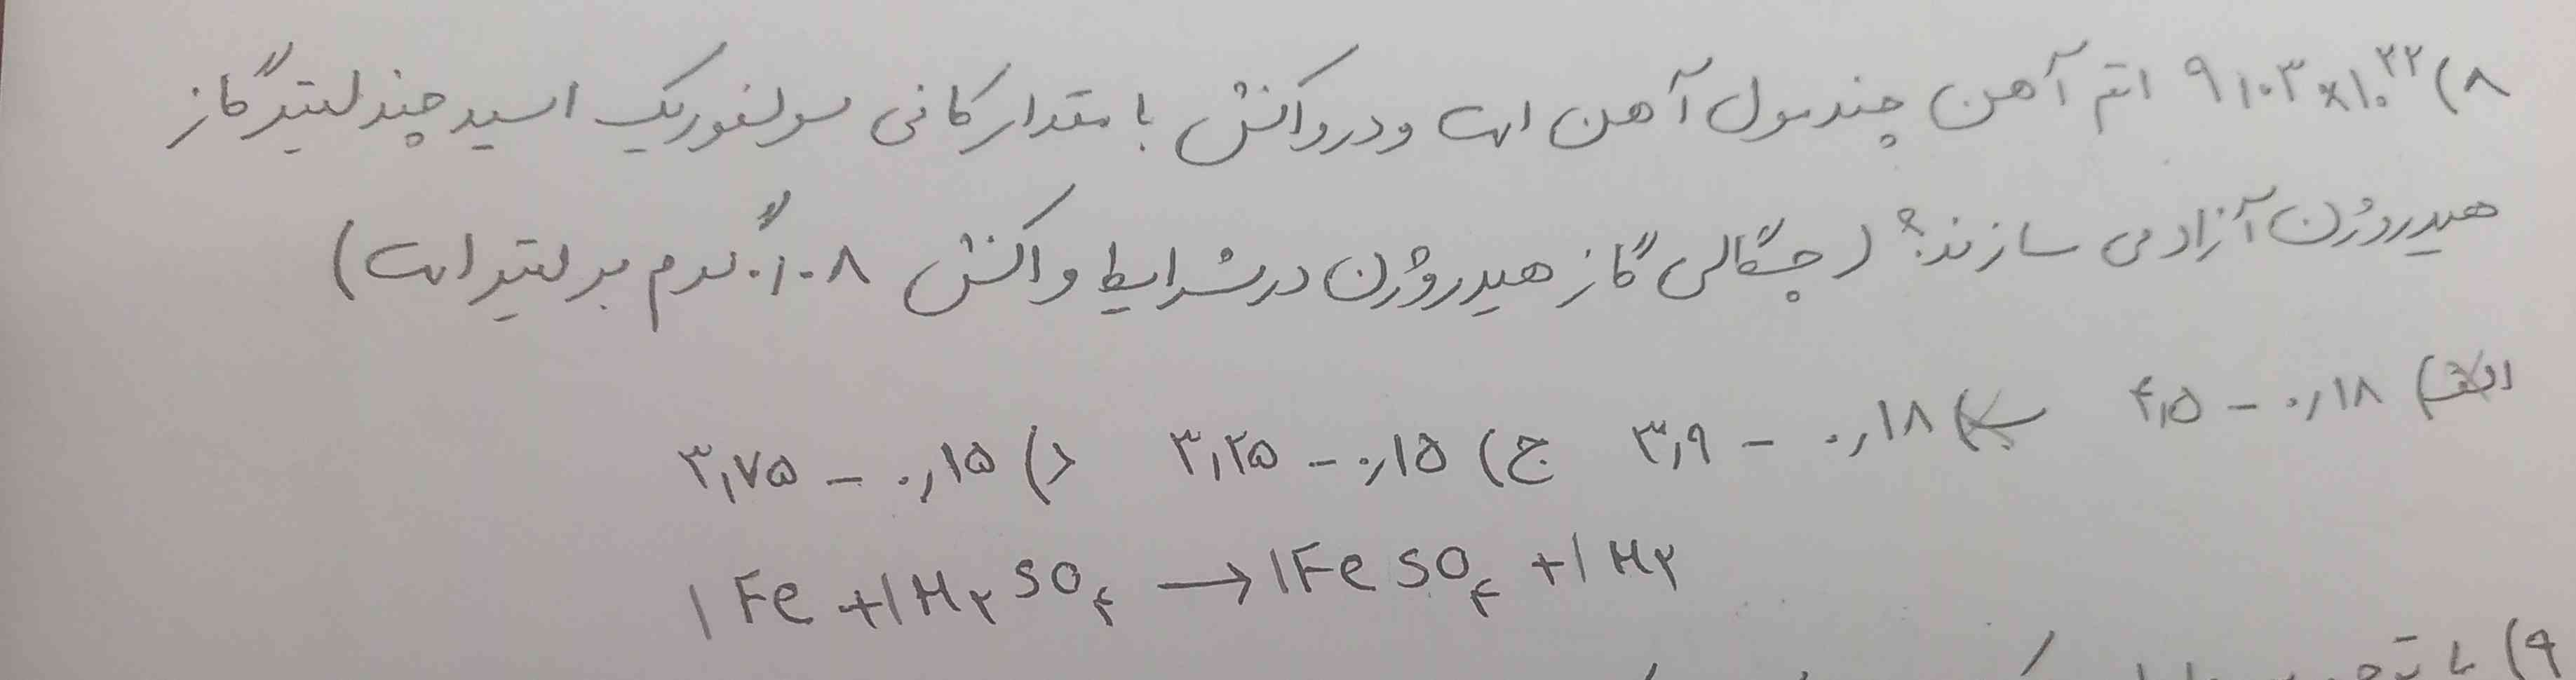 ۸) ۹٫۰۳×۱۰^۲۲ اتم آهن چند مول آهن است و در واکنش با مقدار کافی سولفوریک اسید چند لیتر گاز
هیدروژن آزاد می سازند؟ (چگالی گاز هیدروژن در شرایط واکنش ۰٫۰۸ گرم بر لیتر است)
الف) ۰٫۱۸ – ۴٫۵ ب) ۰٫۱۸ – ۳٫۹ ج) ۰٫۱۵ – ۳٫۲۵ د) ۰٫۱۵ – ۳٫۷۵
۱Fe + ۱H۲SO۴ → ۱FeSO۴ + ۱H۲
۹) با